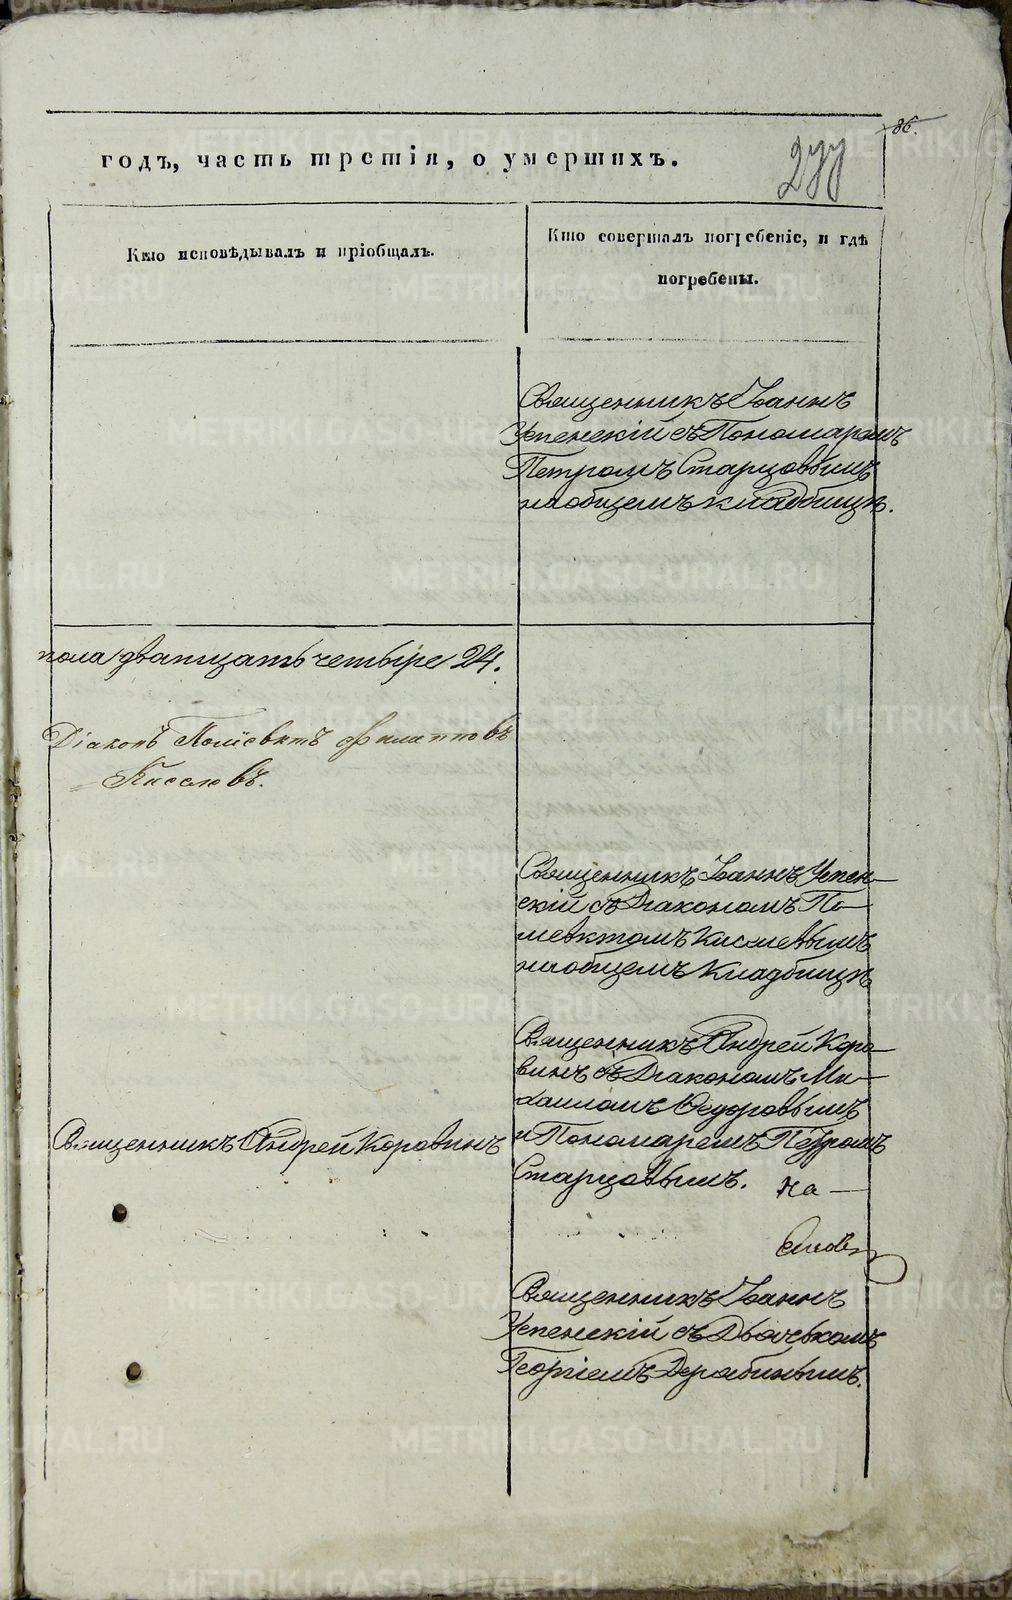 86.
277
годъ, часть третія, о умершихъ.
Кто исповѣдывалъ и пріобщалъ.
Кто совершалъ погребеніе, и гдѣ
погребены.
Священникъ Іоаннъ
Успенскій съ Пономаремъ
Петромъ Старцовымъ
на общемъ кладбищѣ.
пола дватцать четыре 24.
Діаконъ Поліевктъ Филатповъ
Киселевъ.
Священникъ Іоаннъ Успен-
скій съ Діакономъ По-
лиевктомъ Киселевымъ
на общемъ Кладбищѣ
Священникъ Андрей Коро-
винъ съ Діакономъ Ми-
хаиломъ Федоровымъ
и Пономаремъ Петромъ
Старцовымъ. На-
Священникъ Андрей Коровинъ
Священникъ Іоаннъ
Успенскій съ Дьячькомъ
Георгіемъ Дерябинымъ.
METRIKI.GASO-URAL.RU